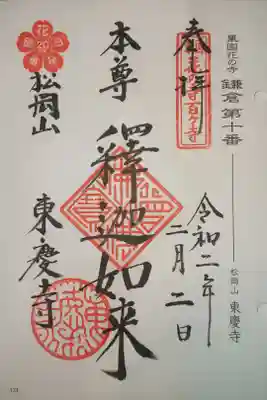 東國花の寺 鎌倉第十番
松岡山 東慶寺
奉拝
令和二年
二月二日
本尊
釋迦如来
松岡山
東慶寺